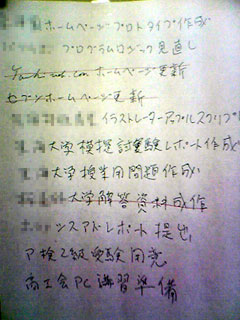 ホームページプロトタイプ作成
プログラムロジック見直し
ホームページ更新
セブンホームページ更新
イラストレーターアップルスクリプト
大学模擬試験レポート作成
大学検定用問題作成
大学解答資料作成
ンスアドレポート提出
P検2級受験用意
商工会PC講習準備